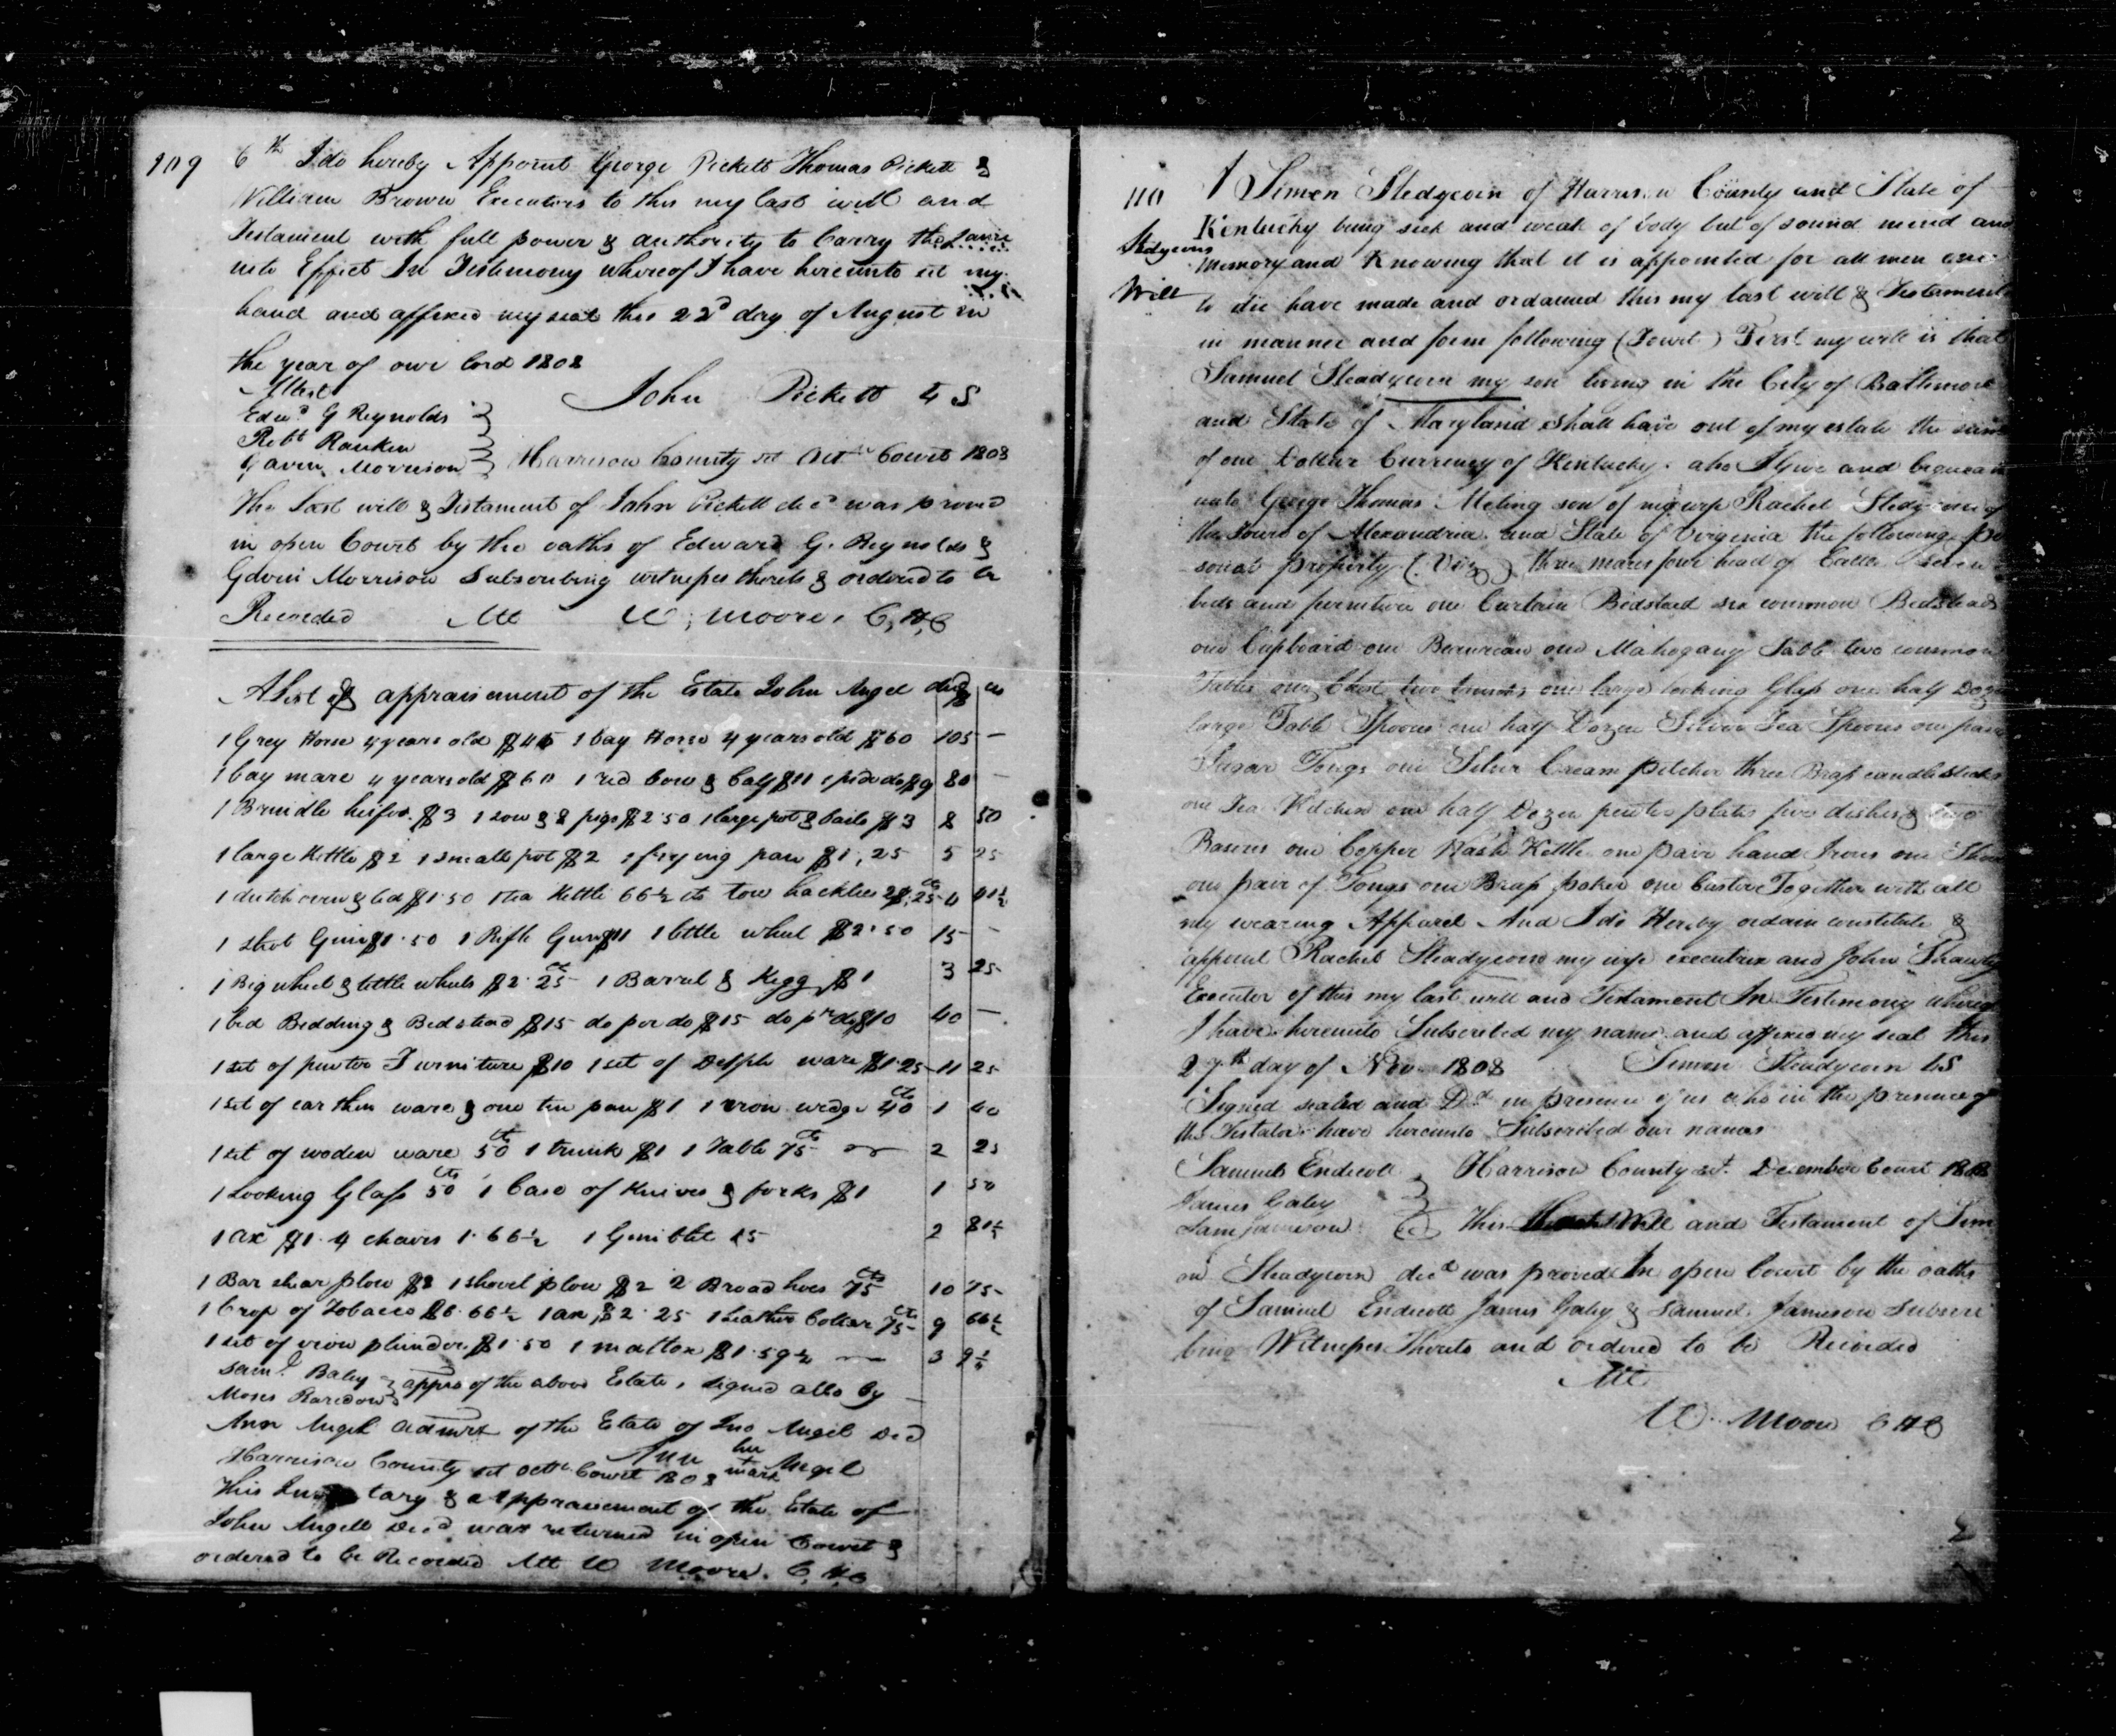 109
6th I do hereby Appoint George Pickett Thomas Pickett &
William Brown Executors to this my last will and
Testament with full power & authority to Carry the Same
into Effect In Testimony whereof I have hereunto set my
hand and affixed my seal this 22d day of August in
the year of our lord 1808
Attest
John Pickett LS
Edwd G Reynolds
Robt Rankin
Gavin Morrison
Harrison County sct Octr Court 1808
The last will & Testament of John Pickett decd was proved
in open Court by the oaths of Edward G. Reynolds &
Gavin Morrison Subscribing witnesses thereto & ordered to be
Recorded Att W, Moore, C,H,C
A List of appraisement of the Estate John Angel decd cts
1 Grey Horse 4 years old $45 1 bay Horse 4 years old $60 105 —
1 bay mare 4 years old $60 1 red Cow & Calf $11 1 pide do $9 80 —
1 Brindle heifer $3 1 sow & 8 pigs $2.50 1 large pot & bails $3 8 50
1 large Kettle $2 1 small pot $2 1 frying pan $1,25 5 25
1 dutch oven & lid $1.50 1 tea Kettle 66½ cts tow hackles 2$,25cts 4 41½
1 Shot Gun $1.50 1 Rifle Gun $11 1 little wheel $2.50 15 —
1 Big wheel & little wheels $2.25cts 1 Barrel & Kegg $1 3 25
1 bed Bedding & Bedstead $15 do per do $15 do pr do $10 40 —
1 set of pewter Furniture $10 1 set of Delph ware $1.25 11 25
1 set of earthen ware & one tin pan $1 1 iron wedge 40cts 1 40
1 set of woden ware 50cts 1 trunk $1 1 Table 75cts 2 25
1 Looking Glass 50cts 1 Case of Knives & forks $1 1 50
1 ax $1. 4 chairs 1.66½ 1 Gimblet 15 2 81½
1 Bar shear plow $8 1 shovel plow $2 2 Broad hoes 75cts 10 75
1 Crop of Tobacco $6.66½ 1 ax $2.25 1 Leather Collar 75cts 9 66½
1 set of iron plunder $1.50 1 mattox $1.59½ 3 9½
Saml Baley
Moses
apprs of the above Estate, signed also by
Ann Angel admrx of the Estate of Jno Angel Decd
Ann her + mark Angel
Harrison County sct Octr Court 1808
This Inventary & appraisement of the Estate of
John Angell Decd was returned in open Court &
ordered to be Recorded Att W Moore. C,H,C
110
Stedgcorns
Will
I Simon Stedgcorn of Harrison County and State of
Kentucky being sick and weak of body but of sound mind and
Memory and Knowing that it is appointed for all men once
to die have made and ordained this my last will & Testament
in manner and form following (Towit) First my will is that
Samuel Steadgcorn my son living in the City of Baltimore
and State of Maryland shall have out of my estate the sum
of one Dollar Currency of Kentucky. also I Give and bequeath
unto George Thomas Meling son of my wife Rachel Stedgcorn of
the Town of Alexandria and State of Virginia the following per
sonal property (Viz) three mares four head of Cattle seven
beds and furniture one Curtain Bedstead six common Bedsteads
one Cupboard one Beaureau one Mahogany Table two common
Tables one Chest two trunks one large looking Glass one half Dozen
large Table Spoons one half Dozen Silver Tea Spoons one pair
Sugar Tongs one Silver Cream pitcher three Brass candlesticks
one Tea Kitchen one half Dozen pewter plates five dishes & two
Basons one Copper Wash Kettle one pair hand Irons one Shovel
one pair of Tongs one Brass poker one Castor Together with all
my wearing Apparel And I do Hereby ordain constitute &
appoint Rachel Steadgcorn my wife executrix and John Shawhan
Executor of this my last will and Testament In Testimony whereof
I have hereunto Subscribed my name and affixed my seal this
27th day of Nov 1808 Simon Steadgcorn LS
Signed sealed and Dd in presence of us who in the presence of
the Testator have hereunto Subscribed our names
Samuel Endicott
James Galey
Saml Jameson
Harrison County sct. December Court 1808
This Will and Testament of Sim
on Steadgcorn decd was proved In open Court by the oaths
of Samuel Endicott James Galey & Samuel Jameson Subscri
bing Witnesses Thereto and ordered to be Recorded
Att
W. Moore CHC